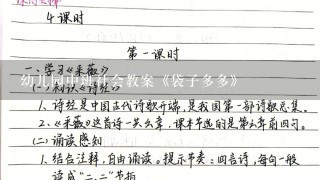 4课时
第一课时
一、学习《采薇》
幼儿园中班社会教案《袋子多多》
1、诗经是中国古代诗歌开端,是我国第一部诗歌总集。
2、《采薇》这首诗一共六章,课本节选的是第六章前四句。
(二)诵读感知
1、结合注释,自由诵读。提示节奏:四言诗,每句一般
读成“二、二”节拍